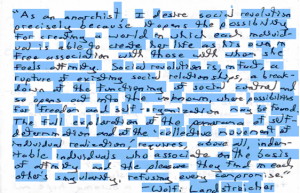 "As an anarchist, I desire social revolution
precisely because it opens the possibility
for creating a world in which each individ-
ual is able to create her life as her own in
free association with those with whom she
feels affinity. Social revolution is, in fact, a
rupture of existing social relationships, a break-
down of the functioning of social control and
so opens out into the unknown, where possibilities
for freedom and self-organization may be found.
The full exploration of the panorama of self-
determination and of the collective movement of
individual realization, requires, above all, indom-
itable individuals who associate on the basis
of affinity and the pleasure they find in each
other's singularity, refusing every
—Wolfi Landstreicher